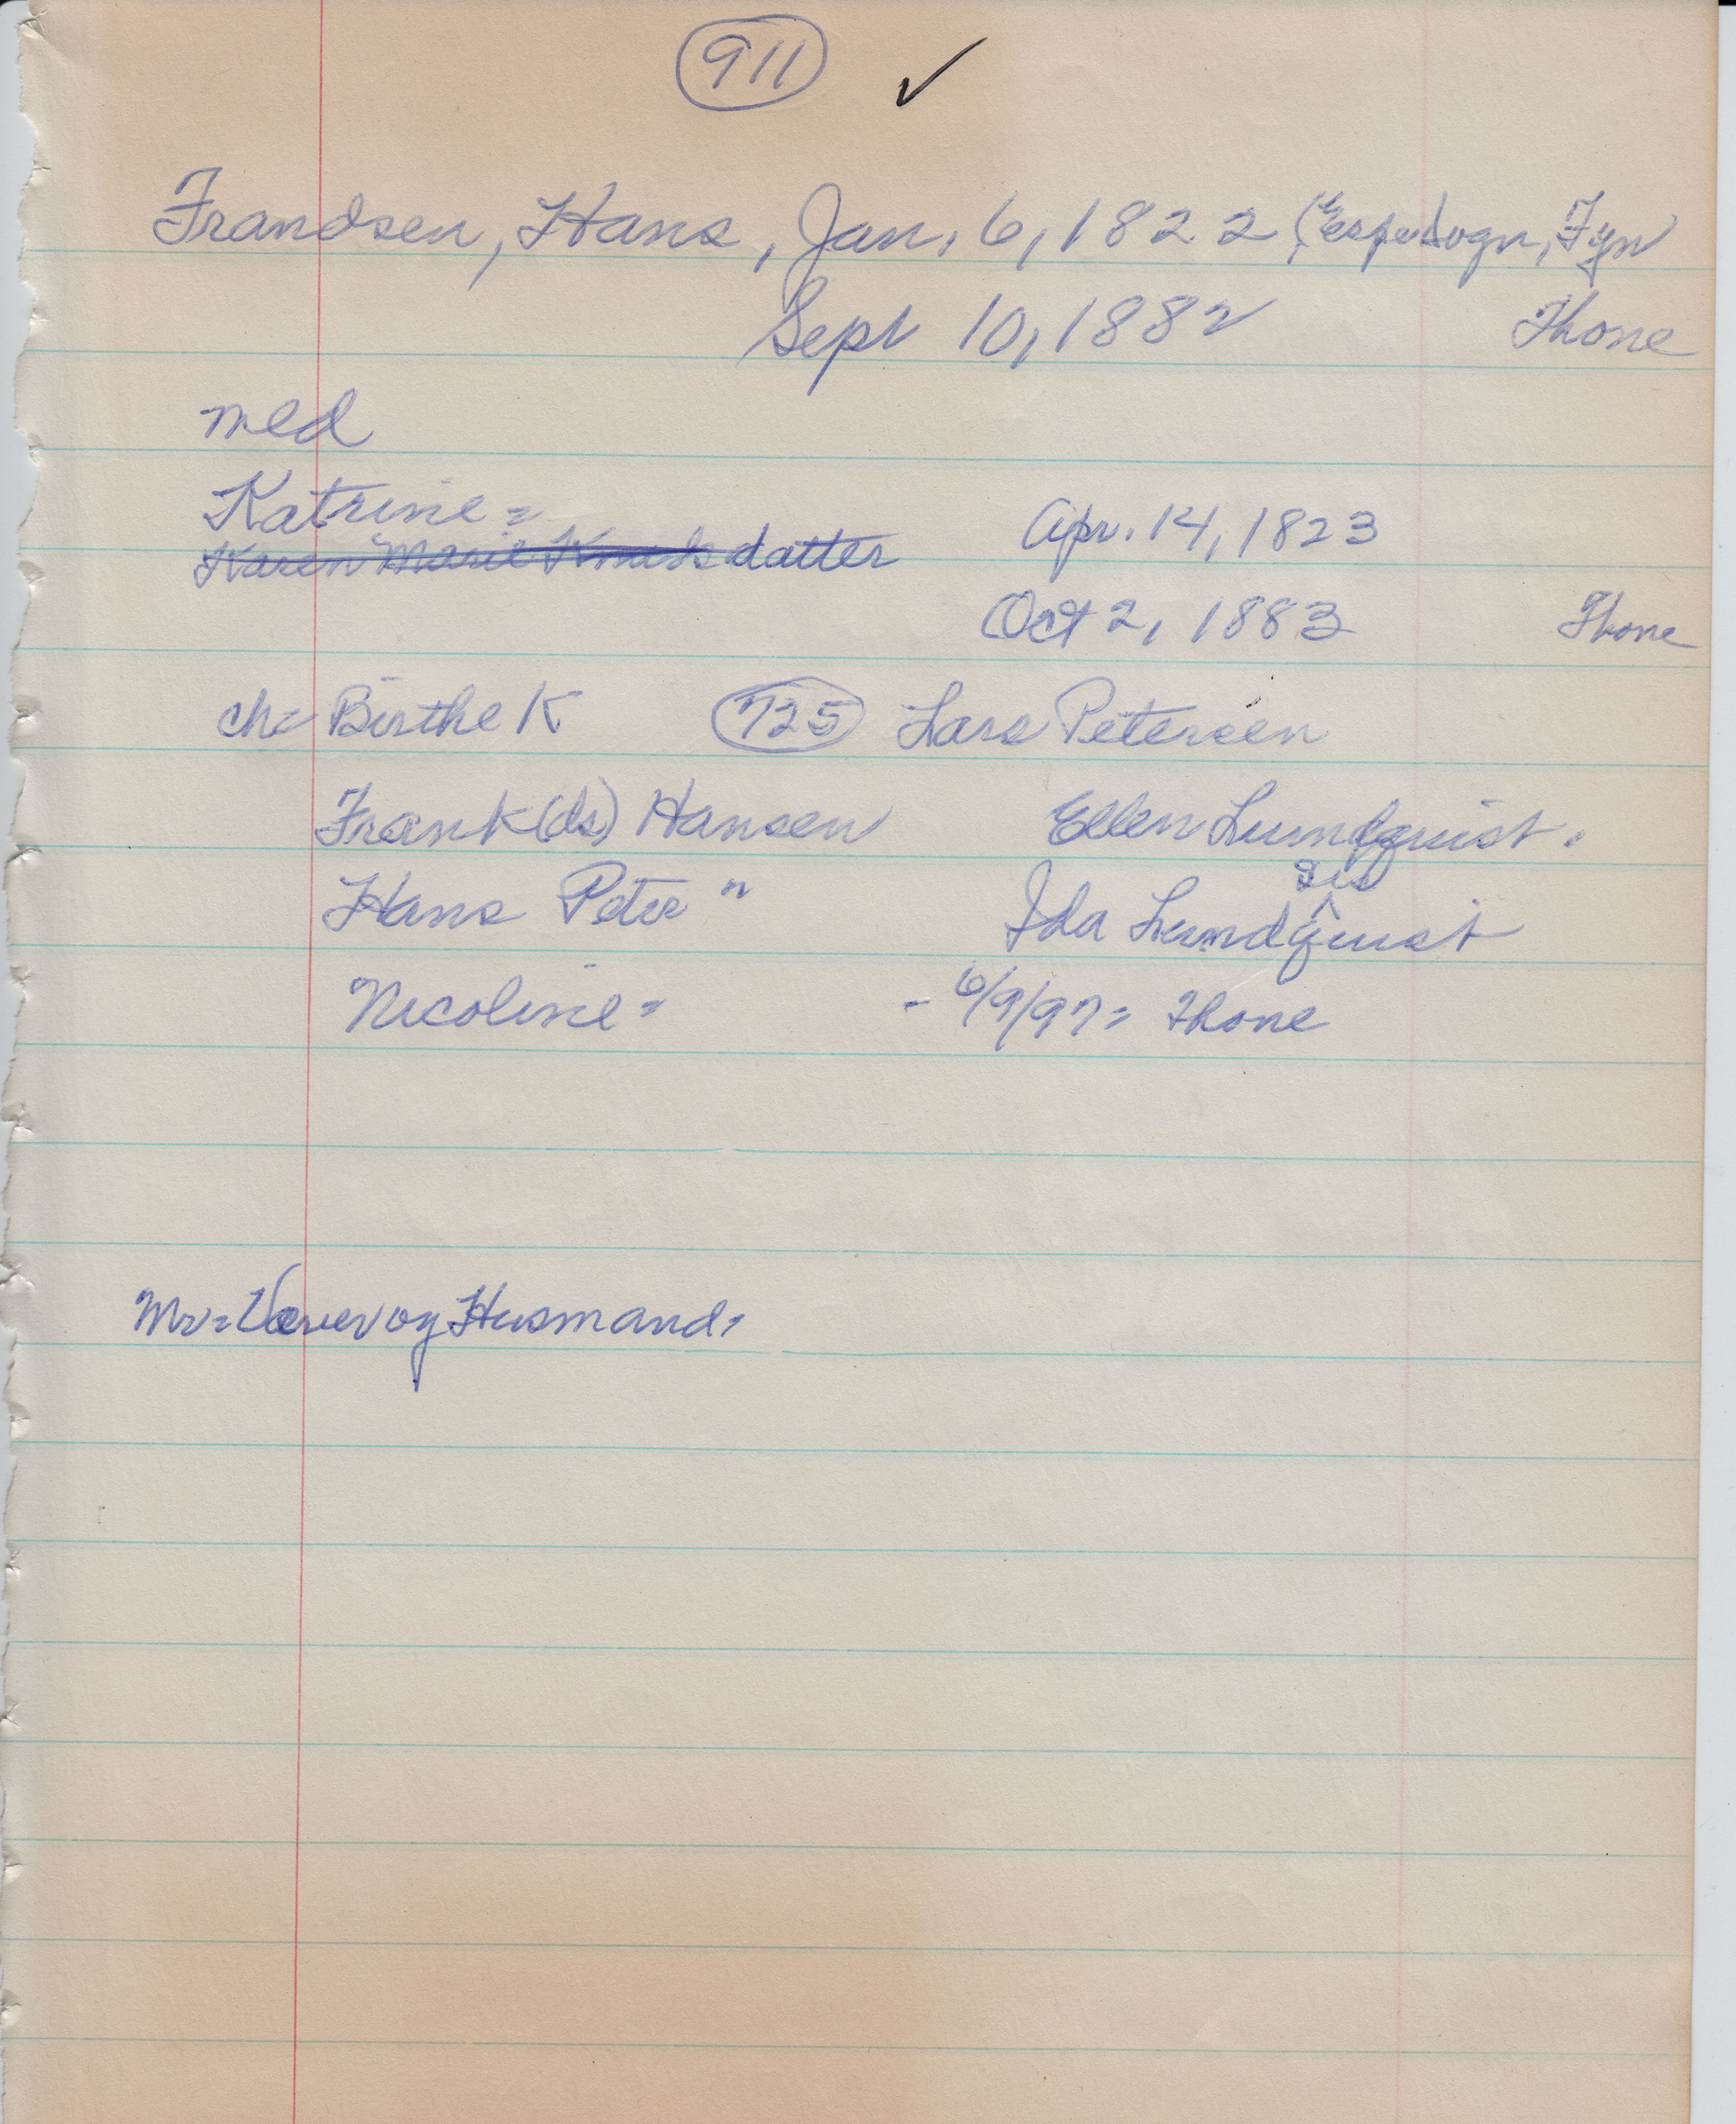 911 ✓
Frandsen, Hans, Jan. 6, 1822 (Espe Sogn, Fyn
Sept 10, 1882 Thone
med
Katrine =
Karen Marie Knudsdatter Apr. 14, 1823
Oct 2, 1883 Thone
ch= Birthe K 725 Lars Petersen
Frank(ds) Hansen Ellen Lundquist.
sis
Hans Peter " Ida Lundquist
Nicoline = - 6/9/97 = Thone
Mr = Væver og Husmand =